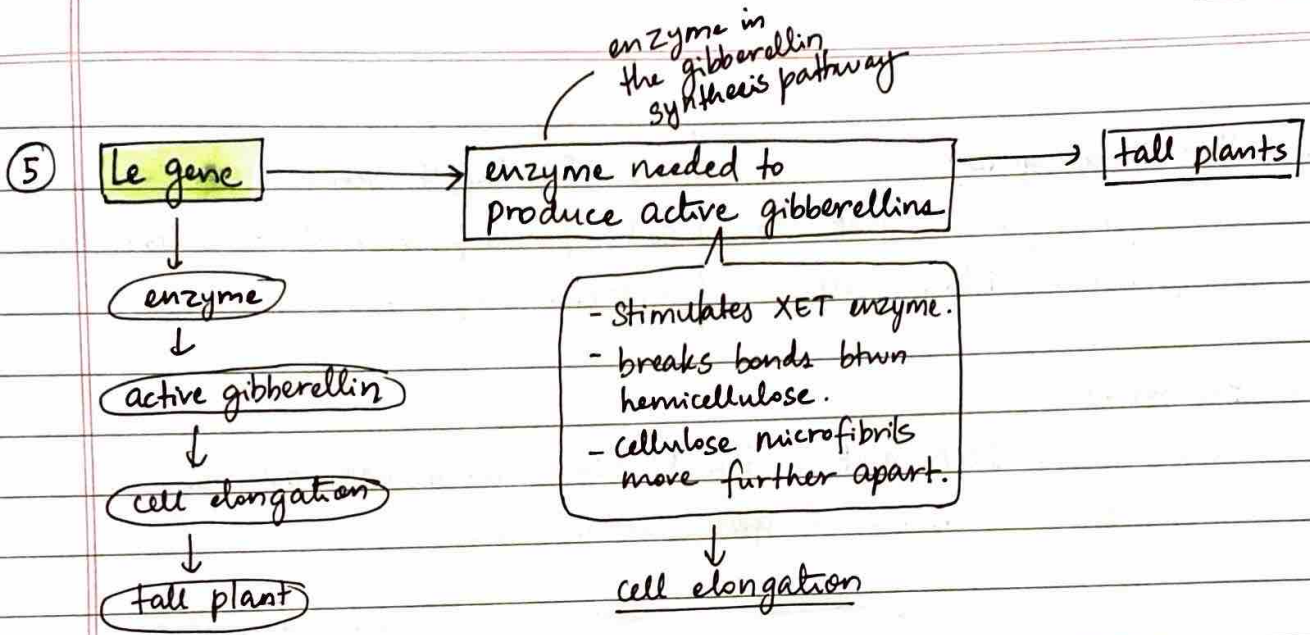 enzyme in
the gibberellin
synthesis pathway
5
Le gene
enzyme needed to
produce active gibberellins
tall plants
enzyme
active gibberellin
cell elongation
tall plant
- Stimulates XET enzyme.
- breaks bonds btwn
hemicellulose.
- cellulose microfibrils
move further apart.
cell elongation